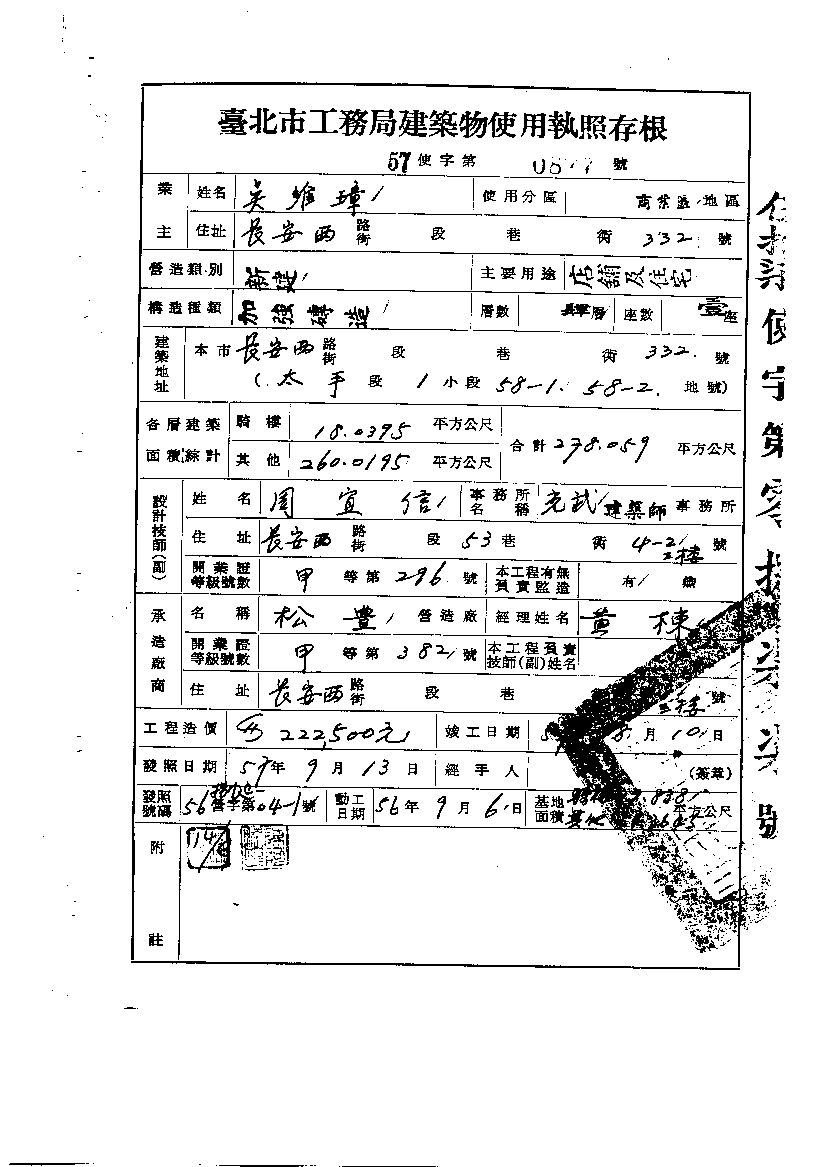 臺北市工務局建築物使用執照存根
57使字第 號
業主 姓名 吳維璋 使用分區 商業區 地區
住址 長安西 路街 段 巷 街 332 號
營造類別 新建 主要用途 店舖及住宅
構造種類 加強磚造 層數 層 座數 壹座
建築地址 本市長安西 路街 段 巷 街 332 號
(太平段 1 小段 58-1. 58-2. 地號)
各層建築面積綜計 騎樓 18.0395 平方公尺 合計 278.059 平方公尺
其他 260.0195 平方公尺
設計技師(副) 姓名 周宜信 事務所名稱 建築師事務所
住址 長安西 路街 段 53 巷 街 4-2 號
二樓
開業證等級號數 甲等第 296 號 本工程有無負責監造 有 無
承造廠商 名稱 松豐 營造廠 經理姓名 黃棟
開業證等級號數 甲等第 382 號 本工程負責技師(副)姓名
住址 長安西 路街 段 巷 號
工程造價 222,500元 竣工日期 8月10日
發照日期 57年9月13日 經手人 (簽章)
發照號碼 56 營字第 號 動工日期 56年9月6日 基地面積 平方公尺
其他
附註
使字第零
號